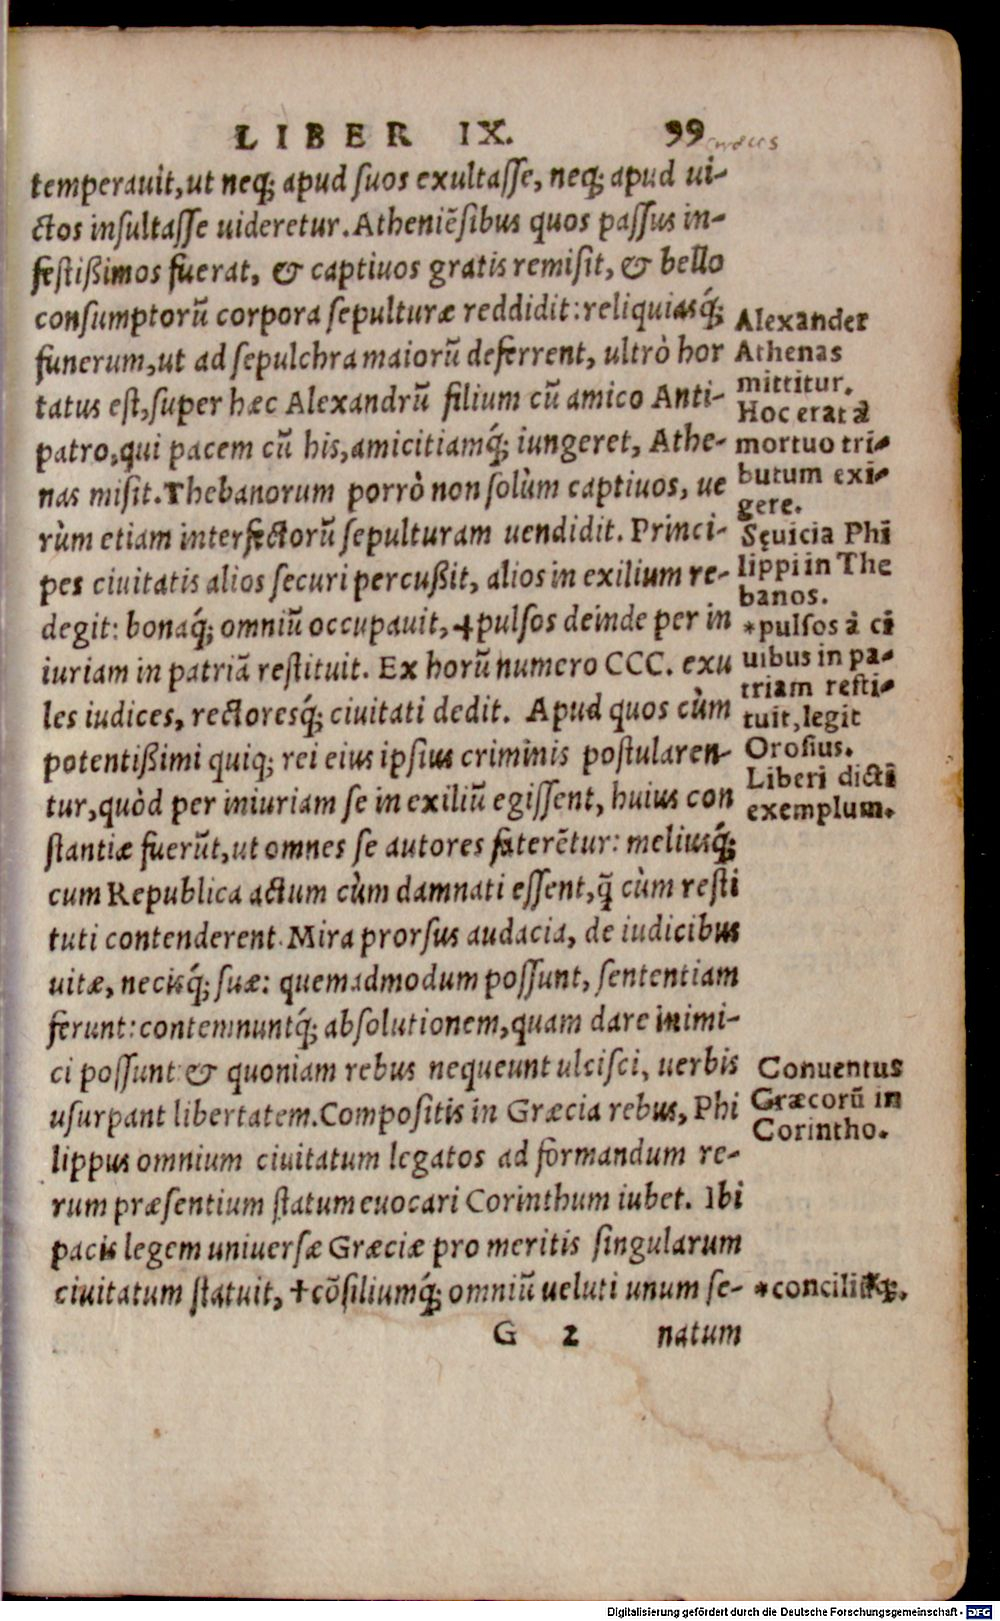 LIBER IX. 99
temperauit, ut neq; apud suos exultasse, neq; apud ui-
ctos insultasse uideretur. Atheniẽsibus quos passus in-
festißimos fuerat, & captiuos gratis remisit, & bello
consumptorũ corpora sepulturæ reddidit: reliquiasq́;
funerum, ut ad sepulchra maiorũ deferrent, ultrò hor
tatus est, super hæc Alexandrũ filium cũ amico Anti-
patro, qui pacem cũ his, amicitiamq́; iungeret, Athe-
nas misit. Thebanorum porrò non solùm captiuos, ue
rùm etiam interfectorũ sepulturam uendidit. Princi-
pes ciuitatis alios securi percußit, alios in exilium re-
degit: bonaq́; omniũ occupauit, +pulsos deinde per in
iuriam in patriã restituit. Ex horũ numero CCC. exu
les iudices, rectoresq́; ciuitati dedit. Apud quos cùm
potentißimi quiq; rei eius ipsius criminis postularen-
tur, quòd per iniuriam se in exiliũ egissent, huius con
stantiæ fuerũt, ut omnes se autores faterẽtur: meliusq́;
cum Republica actum cùm damnati essent, q̃ cùm resti
tuti contenderent. Mira prorsus audacia, de iudicibus
uitæ, necisq́; suæ: quemadmodum possunt, sententiam
ferunt: contemnuntq́; absolutionem, quam dare inimi-
ci possunt: & quoniam rebus nequeunt ulcisci, uerbis
usurpant libertatem. Compositis in Græcia rebus, Phi
lippus omnium ciuitatum legatos ad formandum re-
rum præsentium statum euocari Corinthum iubet. Ibi
pacis legem uniuersæ Græciæ pro meritis singularum
ciuitatum statuit, +cõsiliumq́; omniũ ueluti unum se-
G 2 natum
Alexander
Athenas
mittitur.
Hoc erat à
mortuo tri-
butum exi-
gere.
Sęuicia Phi
lippi in The
banos.
*pulsos à ci
uibus in pa-
triam resti-
tuit, legit
Orosius.
Liberi dicti
exemplum.
Conuentus
Græcorũ in
Corintho.
*conciliũq;.
Digitalisierung gefördert durch die Deutsche Forschungsgemeinschaft - DFG